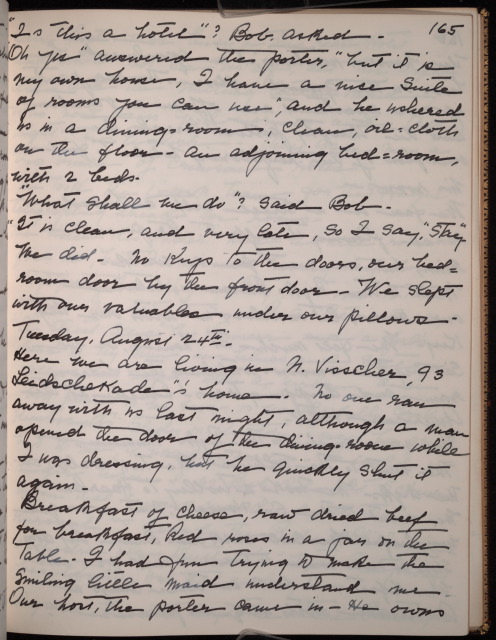 165
"Is this a hotel"? Bob asked -
"Oh yes" answered the porter, "but it is
my own house, I have a nice Suite
of rooms you can use", and he ushered
us in a dining=room; clean, oil=cloth
on the floor - an adjoining bed=room,
with 2 beds.
"What shall we do"? said Bob -
"It is clean, and very late, so I say, "Stay"
We did - No Keys to the doors, our bed=
room door by the front door - We slept
with our valuables under our pillows -
Tuesday, August 24th -
Here we are living in N. Visscher, 93
LeidscheKade"'s home - No one ran
away with us last night, although a man
opened the door of the dining-room while
I was dressing, but he quickly shut it
again -
Breakfast of cheese, raw dried beef
for breakfast, Red roses in a jar on the
Table - I had fun trying to make the
Smiling little maid understand me -
Our host, the porter came in - He owns